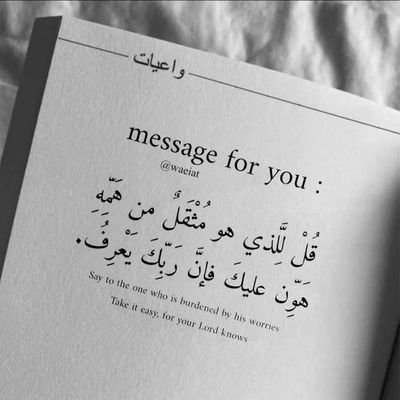 واعيات
message for you :
@waeiat
قُلْ لِلَّذي هو مُثْقَلٌ من هَمِّهِ
هَوِّن عليكَ فإنَّ رَبِّكَ يَعْرِفُ.
Say to the one who is burdened by his worries
Take it easy, for your Lord knows